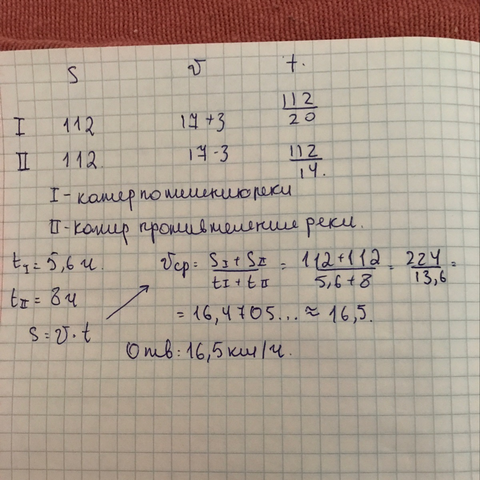 S v t.
I 112 17+3 112/20
II 112 17-3 112/14.
I - катер по течению реки
II - катер против течение реки.
t_I = 5,6 ч. v_ср. = (S_I + S_II)/(t_I + t_II) = (112+112)/(5,6+8) = 224/13,6 =
t_II = 8 ч
= 16,4705... ≈ 16,5.
S = v · t
Отв: 16,5 км/ч.